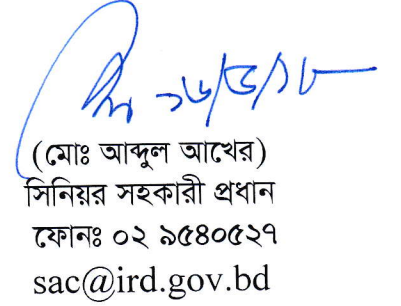 ১৬/৫/১৮
(মোঃ আব্দুল আখের)
সিনিয়র সহকারী প্রধান
ফোনঃ ০২ ৯৫৪০৫২৭
sac@ird.gov.bd